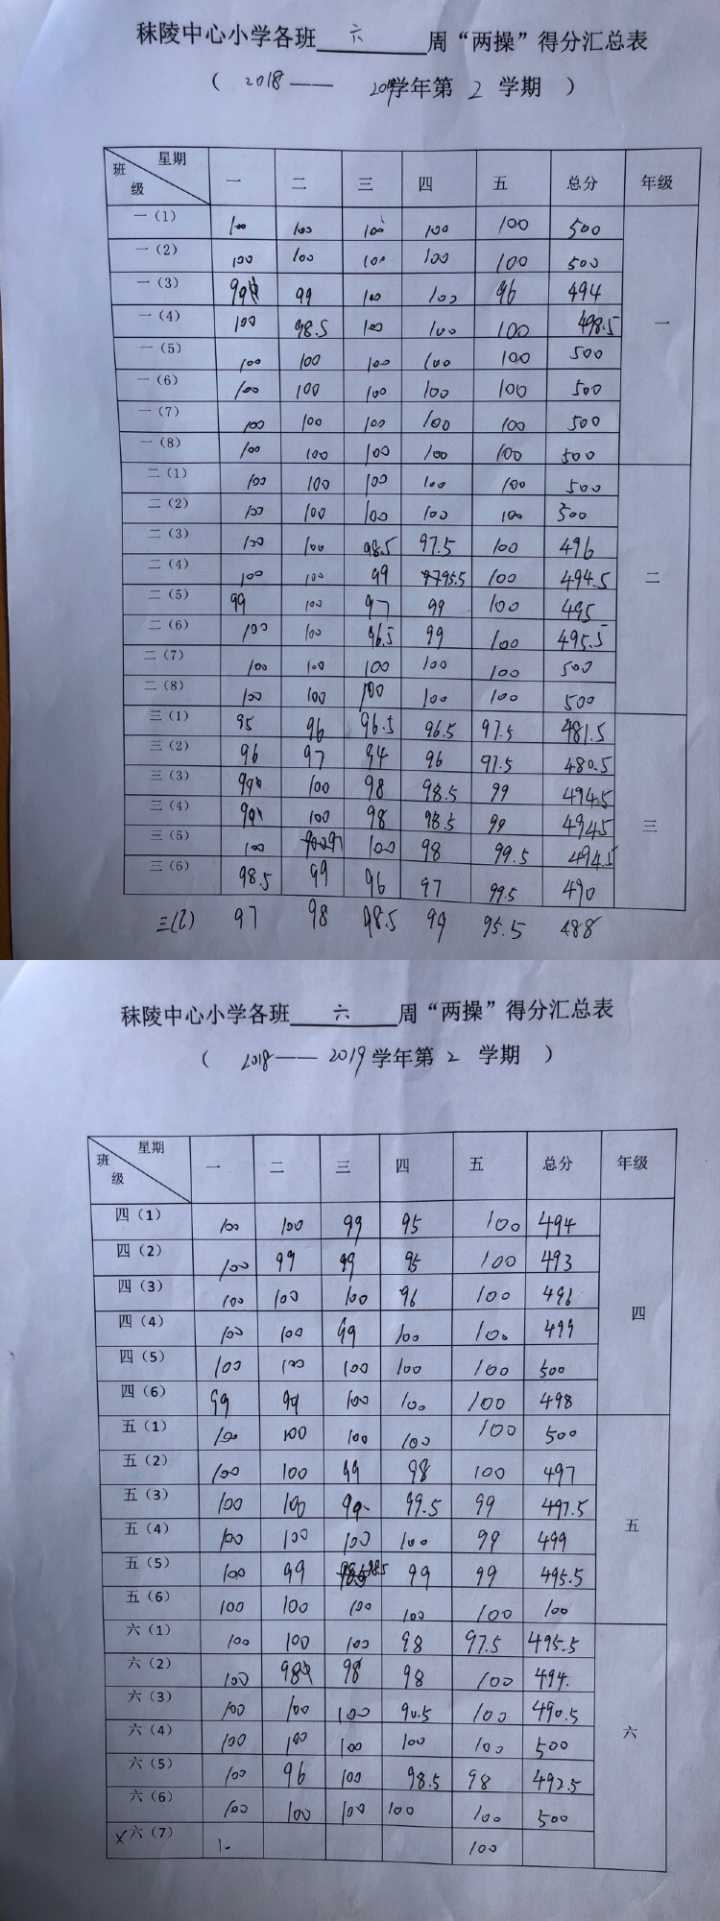 秣陵中心小学各班 六 周“两操”得分汇总表
（ 2018 —— 2019学年第 2 学期 ）
星期 班级 一 二 三 四 五 总分 年级
一（1） 100 100 100 100 100 500
一（2） 100 100 100 100 100 500
一（3） 99 99 100 100 96 494
一（4） 100 98.5 100 100 100 498.5 一
一（5） 100 100 100 100 100 500
一（6） 100 100 100 100 100 500
一（7） 100 100 100 100 100 500
一（8） 100 100 100 100 100 500
二（1） 100 100 100 100 100 500
二（2） 100 100 100 100 100 500
二（3） 100 100 98.5 97.5 100 496
二（4） 100 100 99 95.5 100 494.5 二
二（5） 99 100 97 99 100 495
二（6） 100 100 96.5 99 100 495.5
二（7） 100 100 100 100 100 500
二（8） 100 100 100 100 100 500
三（1） 95 96 96.5 96.5 97.5 481.5
三（2） 96 97 94 96 97.5 480.5
三（3） 99 100 98 98.5 99 494.5
三（4） 99 100 98 98.5 99 494.5 三
三（5） 100 97 100 98 99.5 494.5
三（6） 98.5 99 96 97 99.5 490
三(7) 97 98 98.5 99 95.5 488
秣陵中心小学各班 六 周“两操”得分汇总表
（ 2018 —— 2019 学年第 2 学期 ）
星期 班级 一 二 三 四 五 总分 年级
四（1） 100 100 99 95 100 494
四（2） 100 99 99 95 100 493
四（3） 100 100 100 96 100 496
四（4） 100 100 99 100 100 499 四
四（5） 100 100 100 100 100 500
四（6） 99 99 100 100 100 498
五（1） 100 100 100 100 100 500
五（2） 100 100 99 98 100 497
五（3） 100 100 99 99.5 99 497.5
五（4） 100 100 100 100 99 499 五
五（5） 100 99 98.5 99 99 495.5
五（6） 100 100 100 100 100 100
六（1） 100 100 100 98 97.5 495.5
六（2） 100 98 98 98 100 494.
六（3） 100 100 100 90.5 100 490.5
六（4） 100 100 100 100 100 500 六
六（5） 100 96 100 98.5 98 492.5
六（6） 100 100 100 100 100 500
x六（7） 100